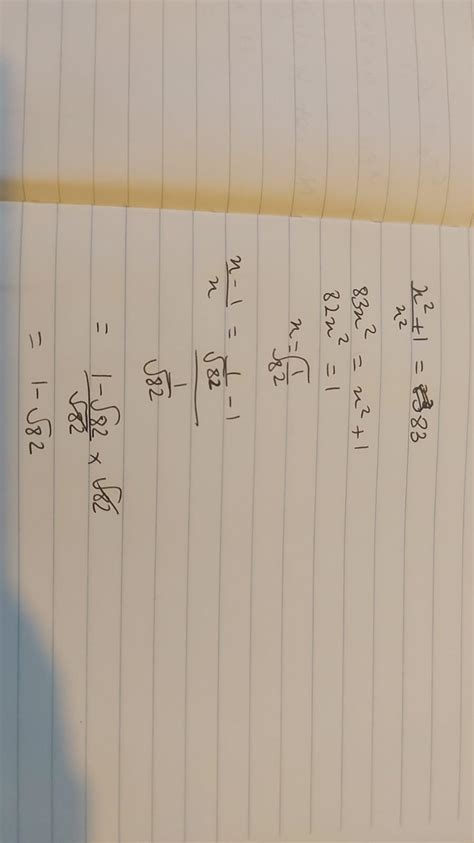 x²+1/x² = 83
83x² = x²+1
82x² = 1
x = √1/82
x-1/x = 1/√82 - 1 / 1/√82
= 1-√82/√82 × √82
= 1-√82